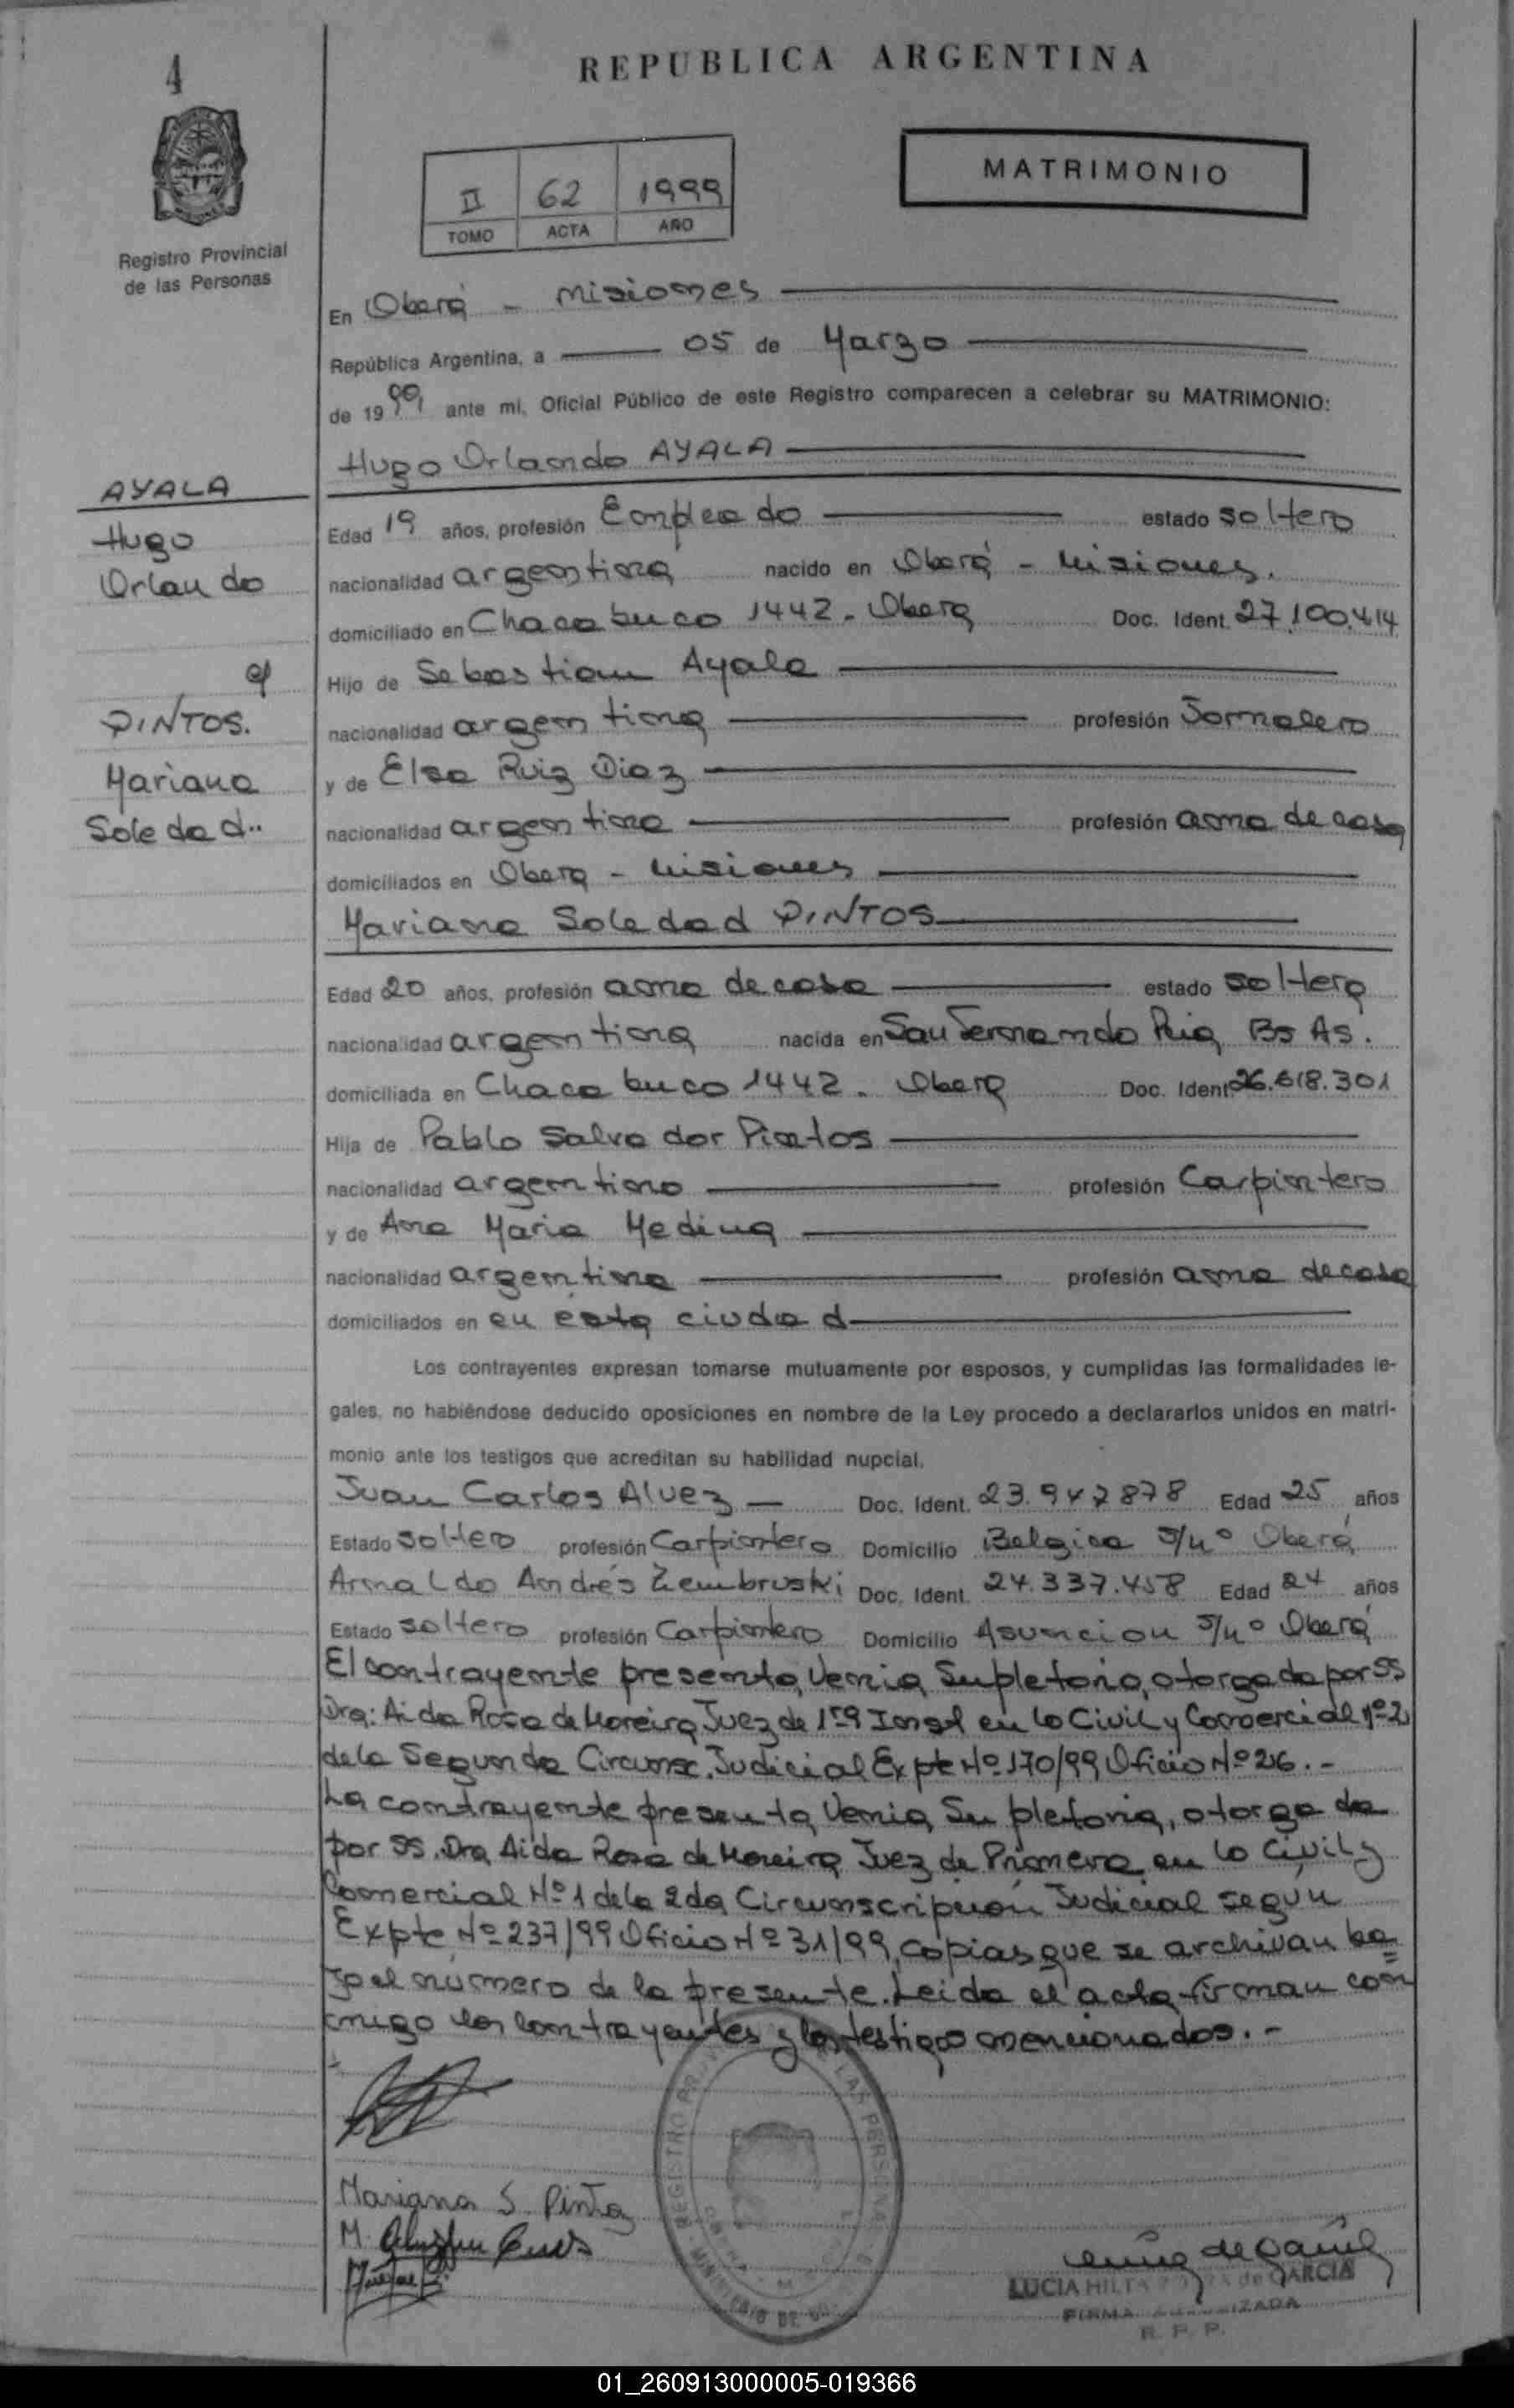 4
REPUBLICA ARGENTINA
Registro Provincial
de las Personas
II 62 1999
TOMO ACTA AÑO
MATRIMONIO
En Oberá - Misiones
República Argentina, a 05 de Marzo
de 1999 ante mí, Oficial Público de este Registro comparecen a celebrar su MATRIMONIO:
Hugo Orlando AYALA
AYALA
Hugo
Orlando
c/
PINTOS.
Mariana
Soledad..
Edad 19 años, profesión Empleado estado soltero
nacionalidad argentina nacido en Oberá - Misiones.
domiciliado en Chacabuco 1442 - Obera Doc. Ident. 27.100.414
Hijo de Sebastian Ayala
nacionalidad argentina profesión Jornalero
y de Elsa Ruiz Diaz
nacionalidad argentina profesión ama de casa
domiciliados en Obera - Misiones
Mariana Soledad PINTOS
Edad 20 años, profesión ama de casa estado soltera
nacionalidad argentina nacida en San Fernando Bs As.
domiciliada en Chacabuco 1442 - Obera Doc. Ident. 26.618.301
Hija de Pablo Salvador Pintos
nacionalidad argentino profesión Carpintero
y de Ana Maria Medina
nacionalidad argentina profesión ama de casa
domiciliados en en ésta ciudad
Los contrayentes expresan tomarse mutuamente por esposos, y cumplidas las formalidades le-
gales, no habiéndose deducido oposiciones en nombre de la Ley procedo a declararlos unidos en matri-
monio ante los testigos que acreditan su habilidad nupcial.
Juan Carlos Alvez Doc. Ident. 23.947878 Edad 25 años
Estado soltero profesión Carpintero Domicilio Belgica s/nº Oberá
Arnaldo Andrés Zembruski Doc. Ident. 24.337.458 Edad 24 años
Estado soltero profesión Carpintero Domicilio Asuncion s/nº Oberá
El contrayente presenta Venia Supletoria, otorgada por SS
Dra: Aida Rosa de Moreira Juez de 1ra Inst en lo Civil y Comercial nº 2
de la Segunda Circunsc. Judicial Expte Nº 170/99 Oficio Nº 26.-
La contrayente presenta Venia Supletoria, otorgada
por SS. Dra Aida Rosa de Moreira Juez de Primera en lo Civil y
Comercial Nº 1 de la 2da Circunscripción Judicial según
Expte Nº 237/99 Oficio Nº 31/99, copias que se archivan ba=
jo el número de la presente. Leida el acta firman con
migo los contrayentes y los testigos mencionados.-
Mariana S. Pintos
LUCIA de GARCIA
FIRMA
R. P. P.
01_260913000005-019366